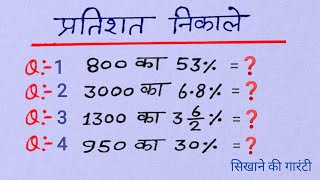 प्रतिशत निकाले
Q:- 1 800 का 53% = ?
Q:- 2 3000 का 6.8% = ?
Q:- 3 1300 का 3 6/2 % = ?
Q:- 4 950 का 30% = ?
सिखाने की गारंटी